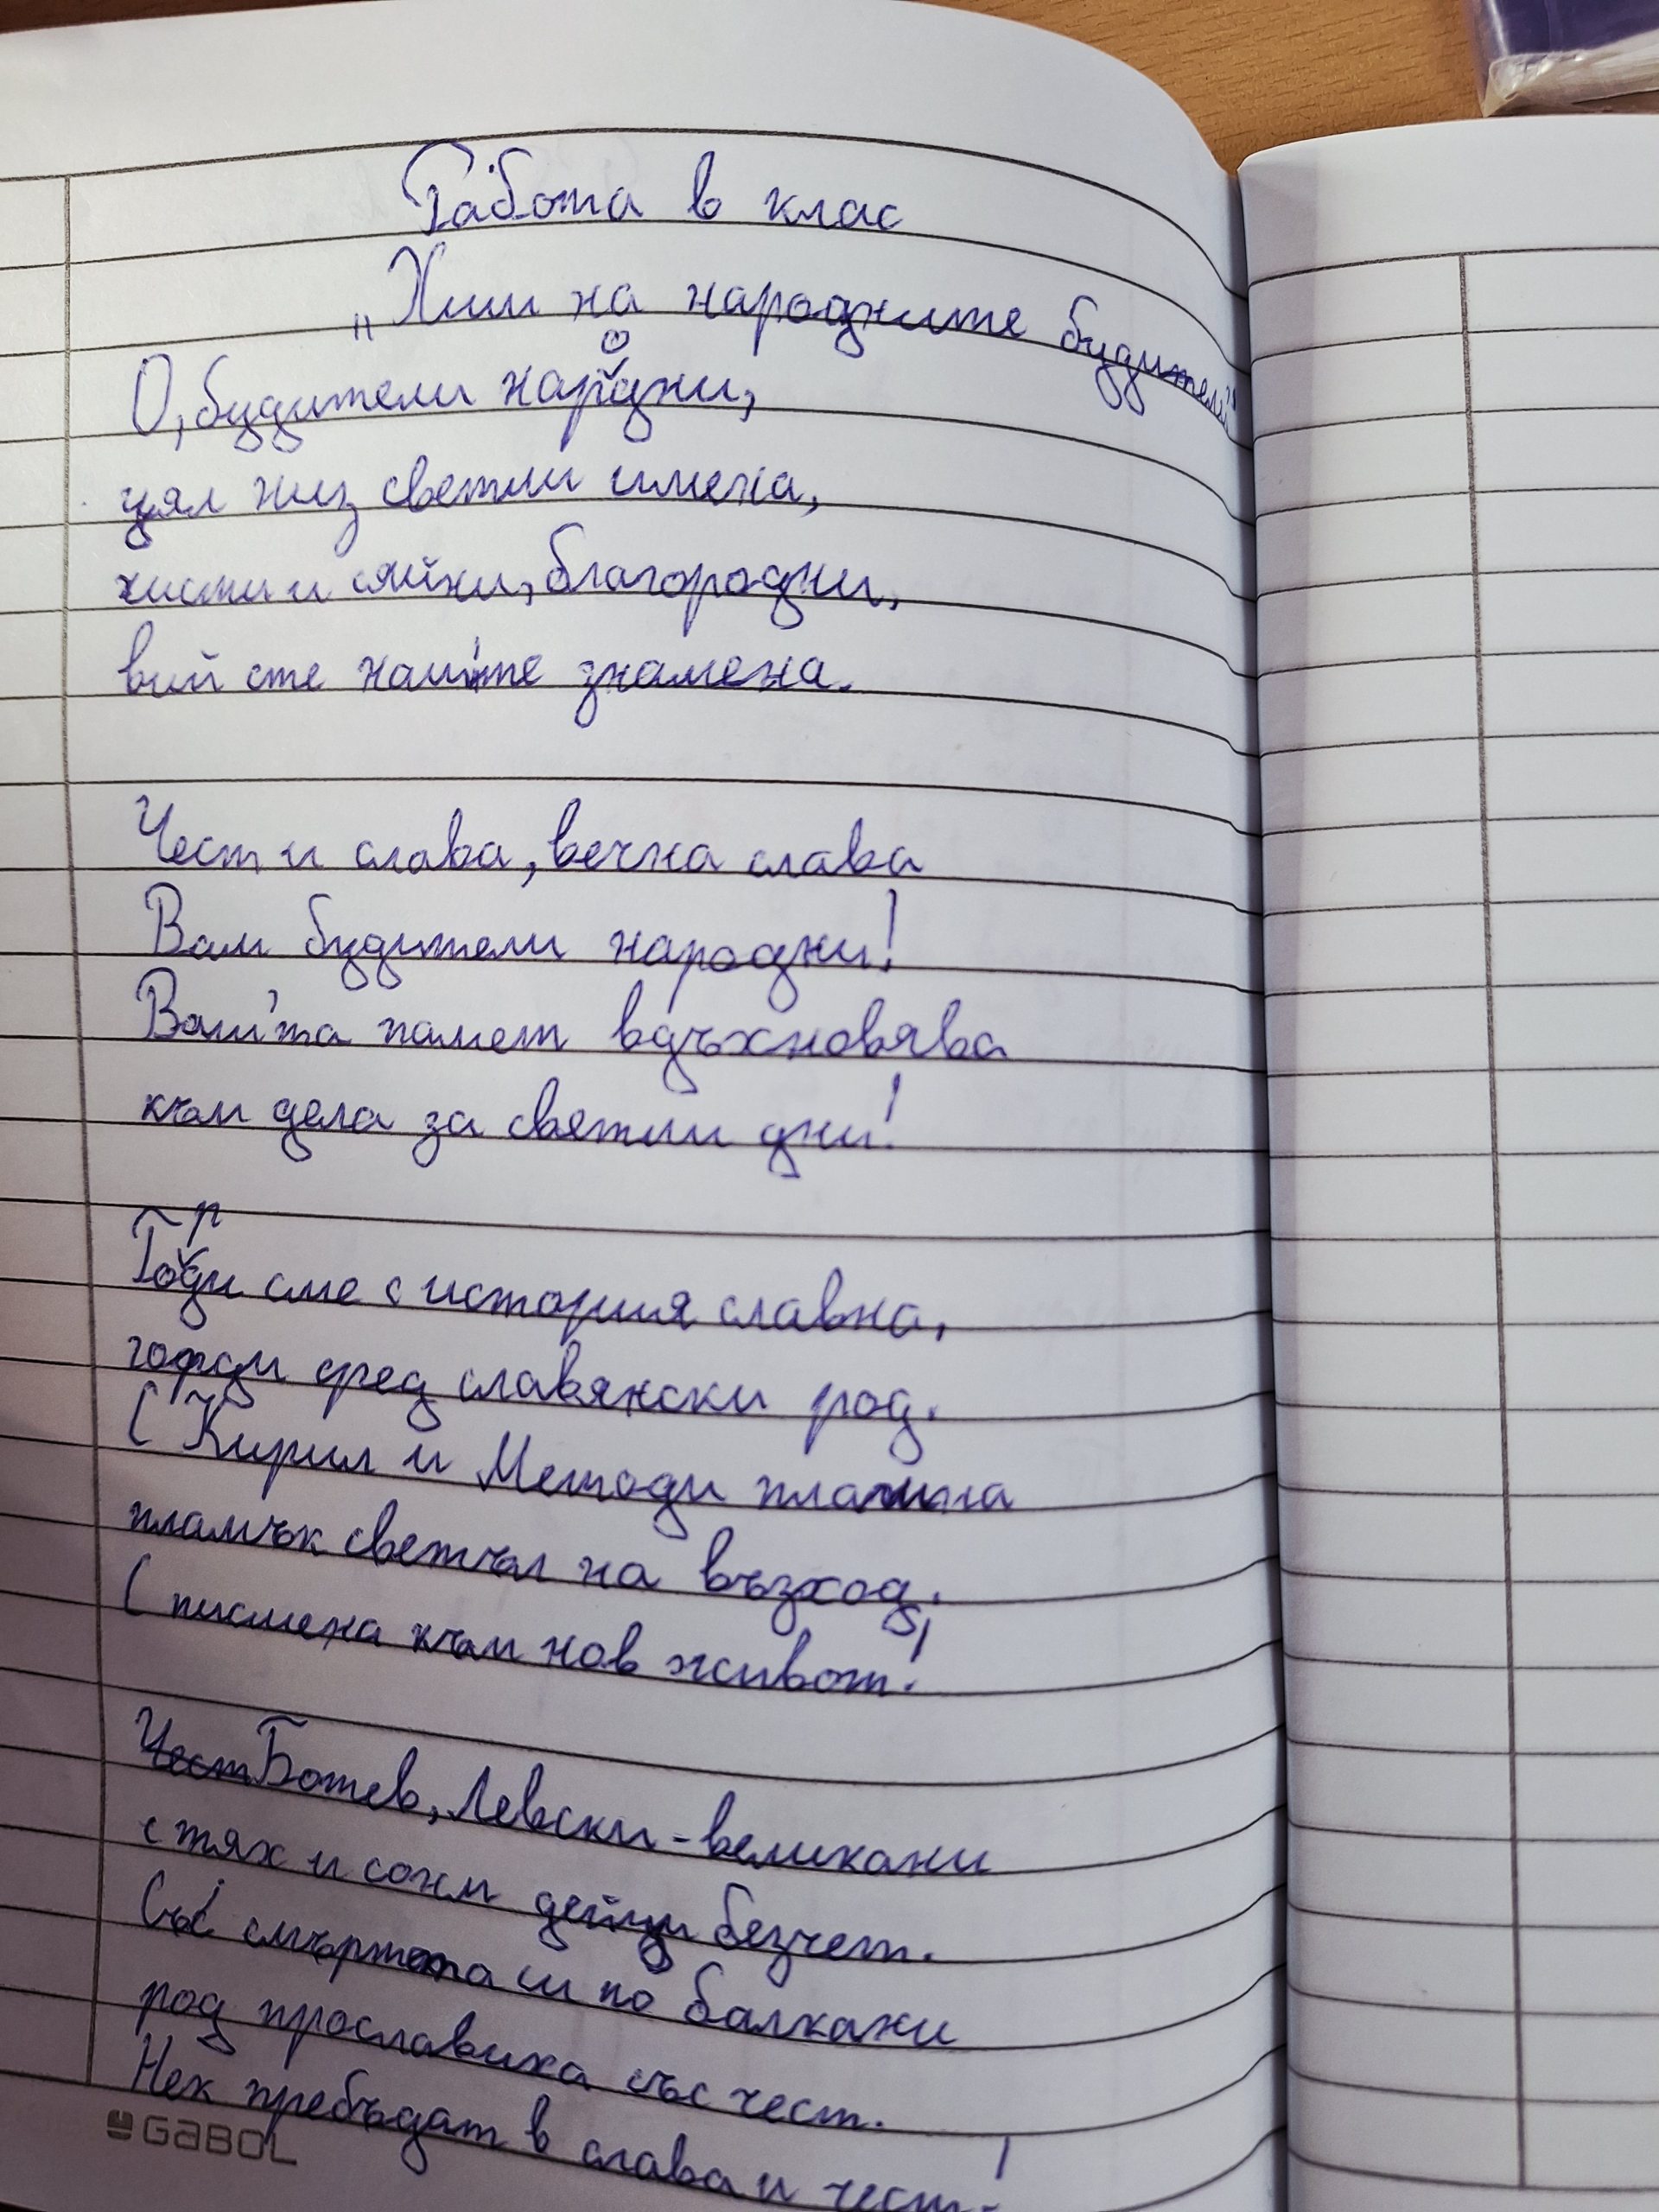 Работа в клас
„Химн на народните будители"
О, будители народни,
цял низ светли имена,
чисти и сяйни, благородни,
вий сте наш'те знамена.
Чест и слава, вечна слава
Вам будители народни!
Ваш'та памет вдъхновява
към дела за светли дни!
Горди сме с история славна,
горди сред славянски род.
С Кирил и Методи пламна
пламък светъл на възход,
С писмена към нов живот!
Чест Ботев, Левски - великани
с тях и сонм дейци безчет.
Със смъртта си по балкани
род прославиха със чест.
Нек пребъдат в слава и чест!
GABOL